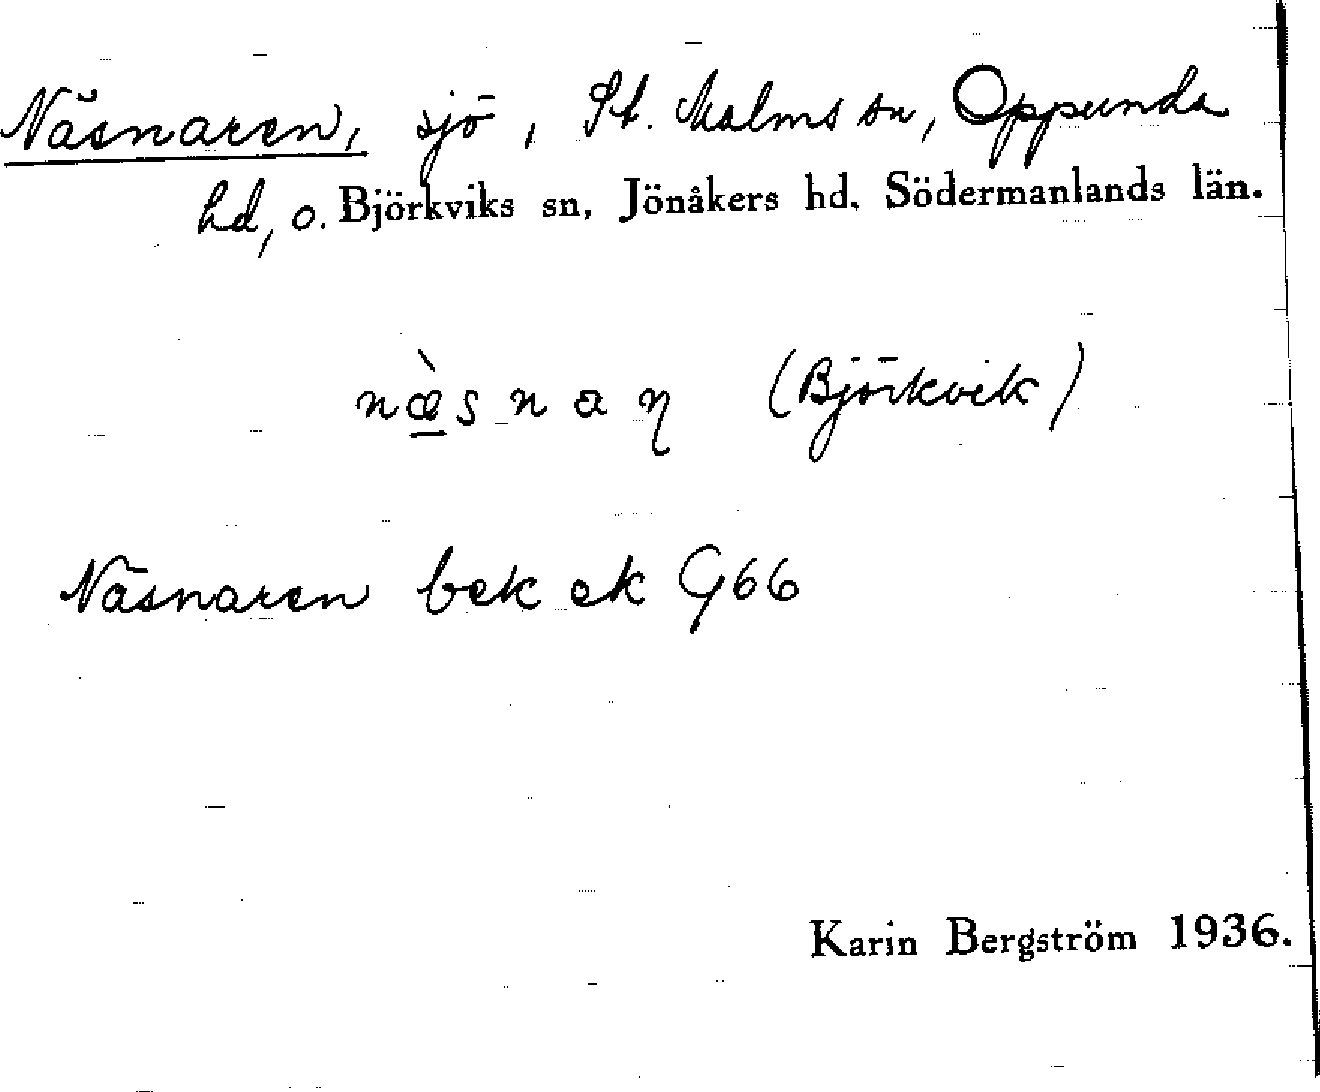 Näsnaren, sjö, St. Malms sn, Oppunda
hd, o. Björkviks sn, Jönåkers hd, Södermanlands län.
næ̀snaη (Björkvik)
Näsnaren bek ek G66
Karin Bergström 1936.